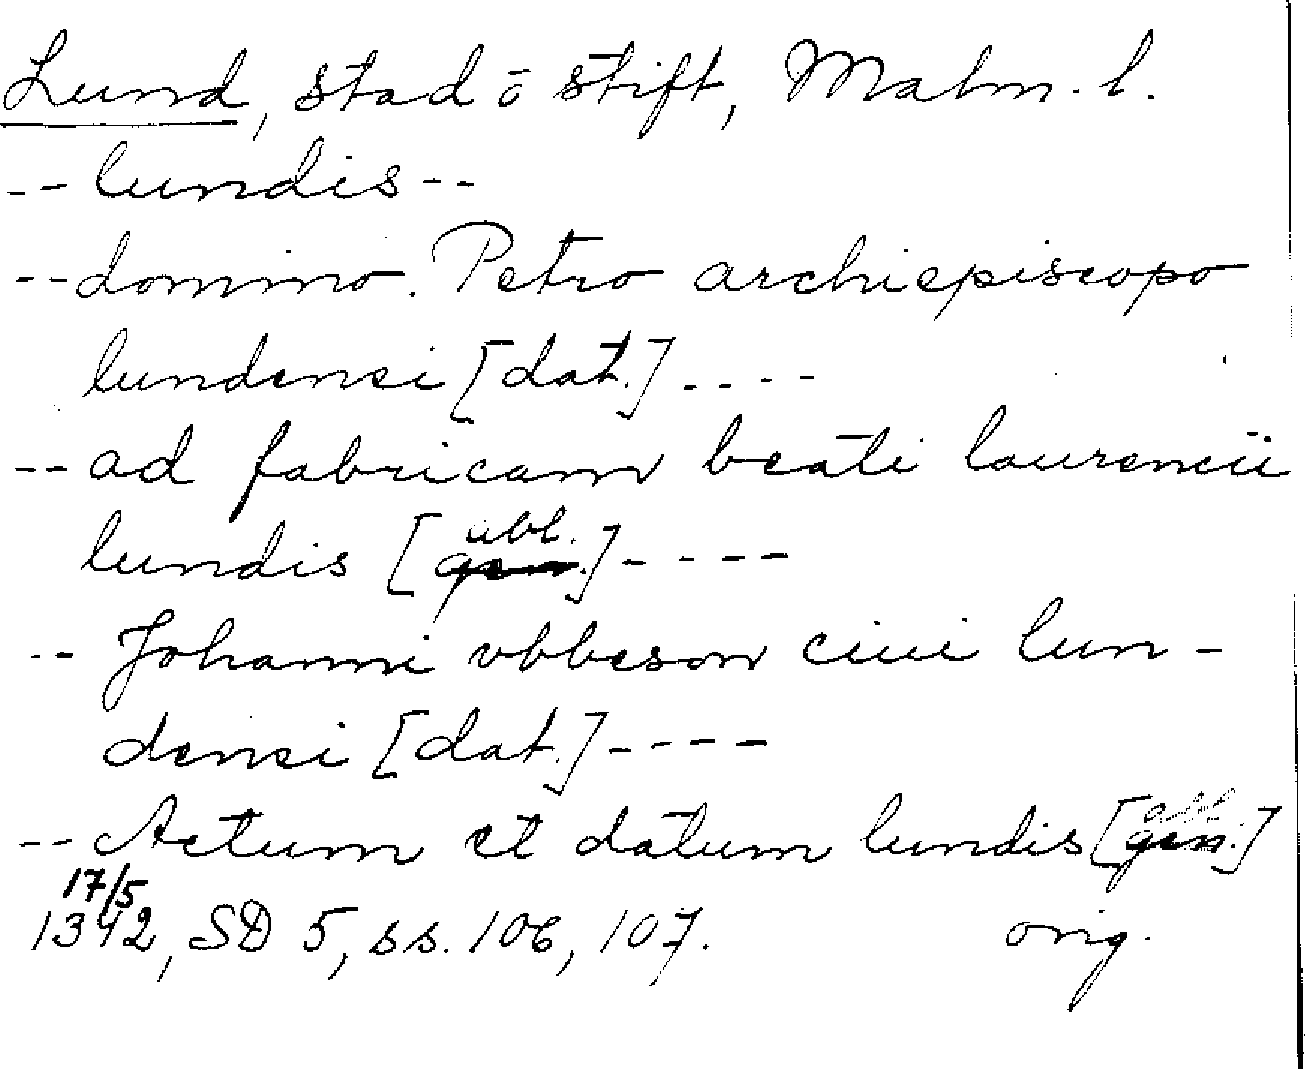 Lund, stad ō stift, Malm. l.
-- lundis --
-- domino. Petro archiepiscopo
lundensi [dat.] ----
-- ad fabricam beati laurencii
abl.
lundis [gen.] ----
-- Johanni vbbeson ciui lun-
densi [dat.] ----
abl
-- Actum et datum lundis [gen.]
17/5
1342, SD 5, ss. 106, 107. orig.